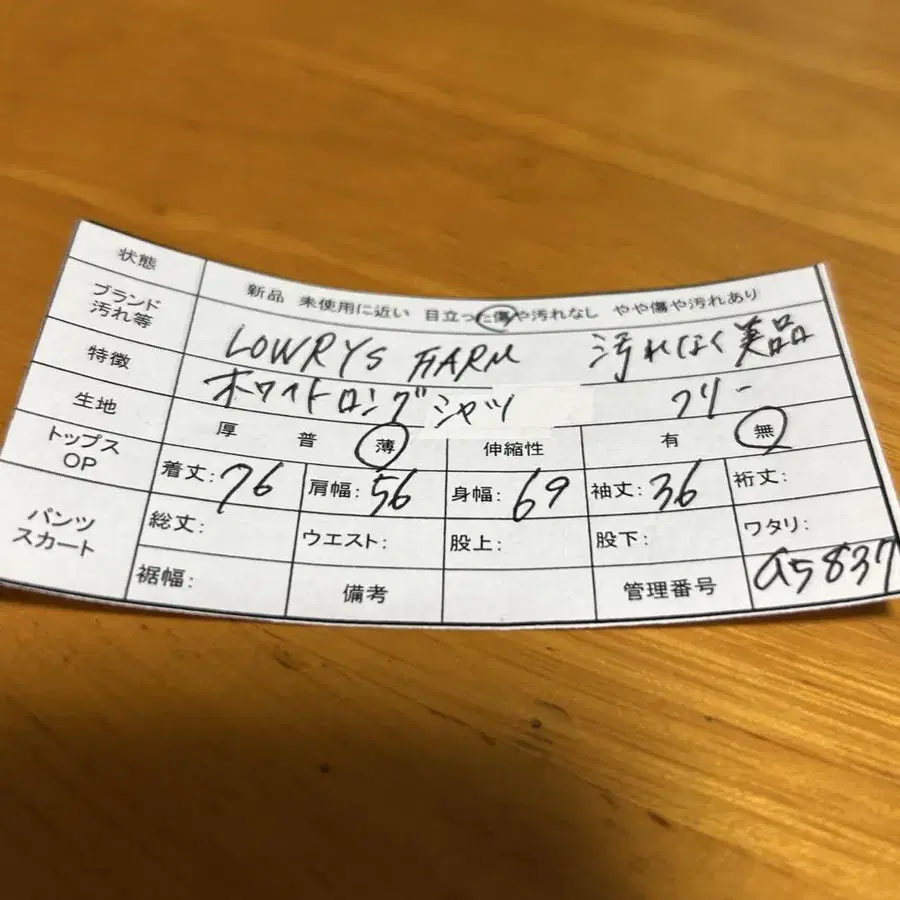 状態 新品 未使用に近い 目立った傷や汚れなし やや傷や汚れあり
ブランド 汚れ等 LOWRYS FARM 汚れなく美品
特徴 ホワイトロングシャツ フリー
生地 厚 普 薄 伸縮性 有 無
トップス OP 着丈:76 肩幅:56 身幅:69 袖丈:36 裄丈:
パンツ スカート 総丈: ウエスト: 股上: 股下: ワタリ:
裾幅: 備考 管理番号 a5837